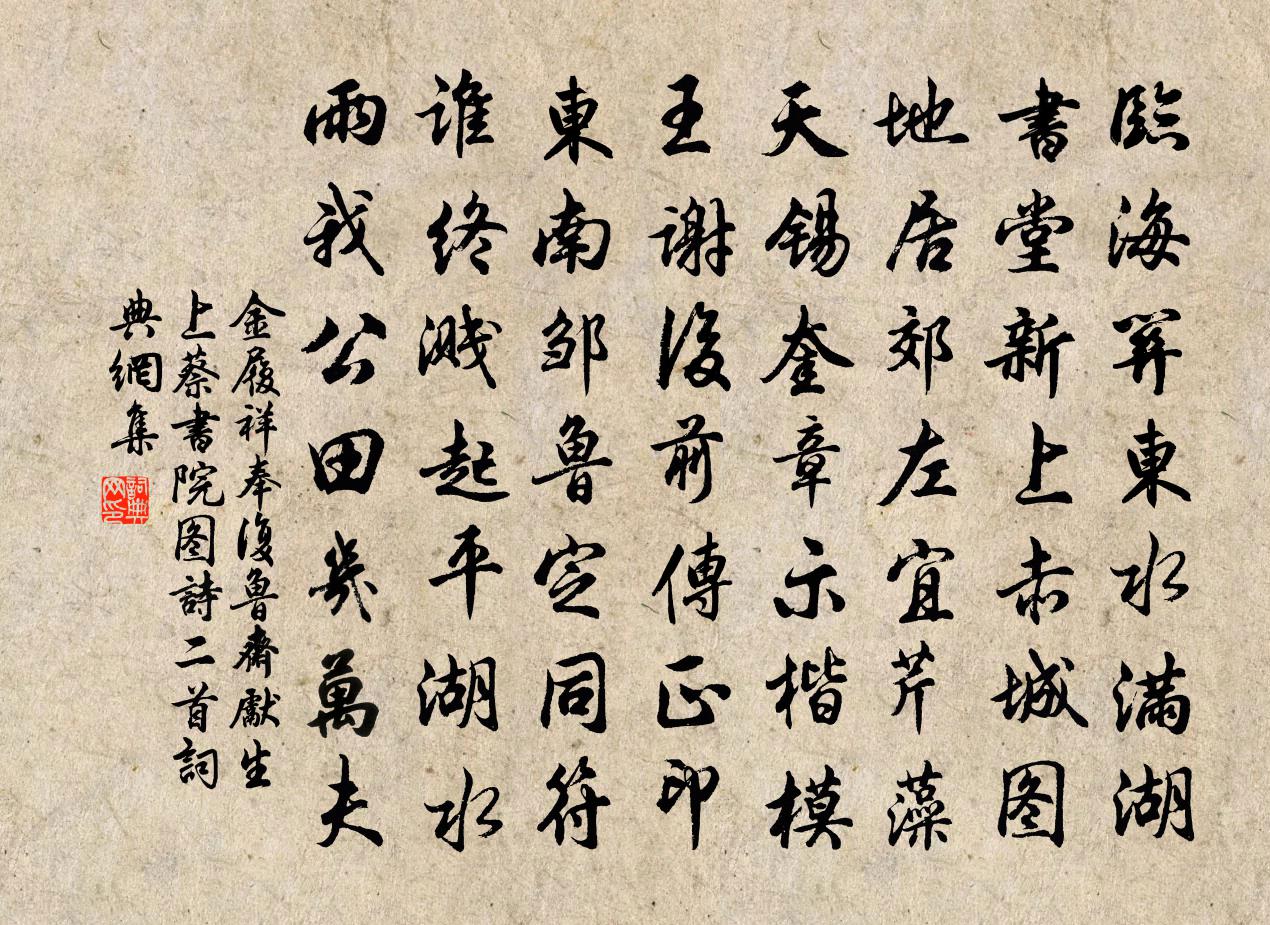 臨海開東水滿湖
書堂新上赤城图
地居郊左宜芹藻
天錫奎章示楷模
王謝後前傳正印
東南邹魯定同符
谁終溅起平湖水
雨我公田幾萬夫
金履祥奉復魯齋獻生
上蔡書院图詩二首詞
典網集
詞典网印